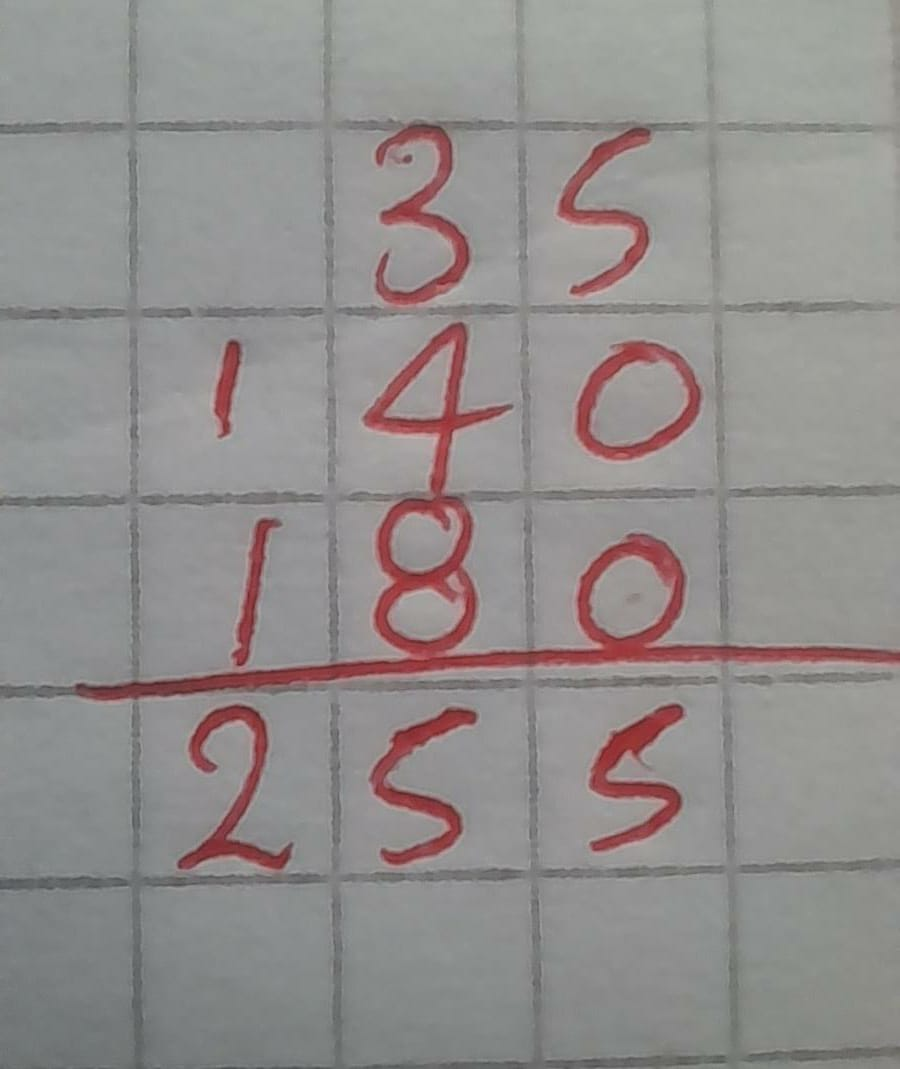 35
140
180
255